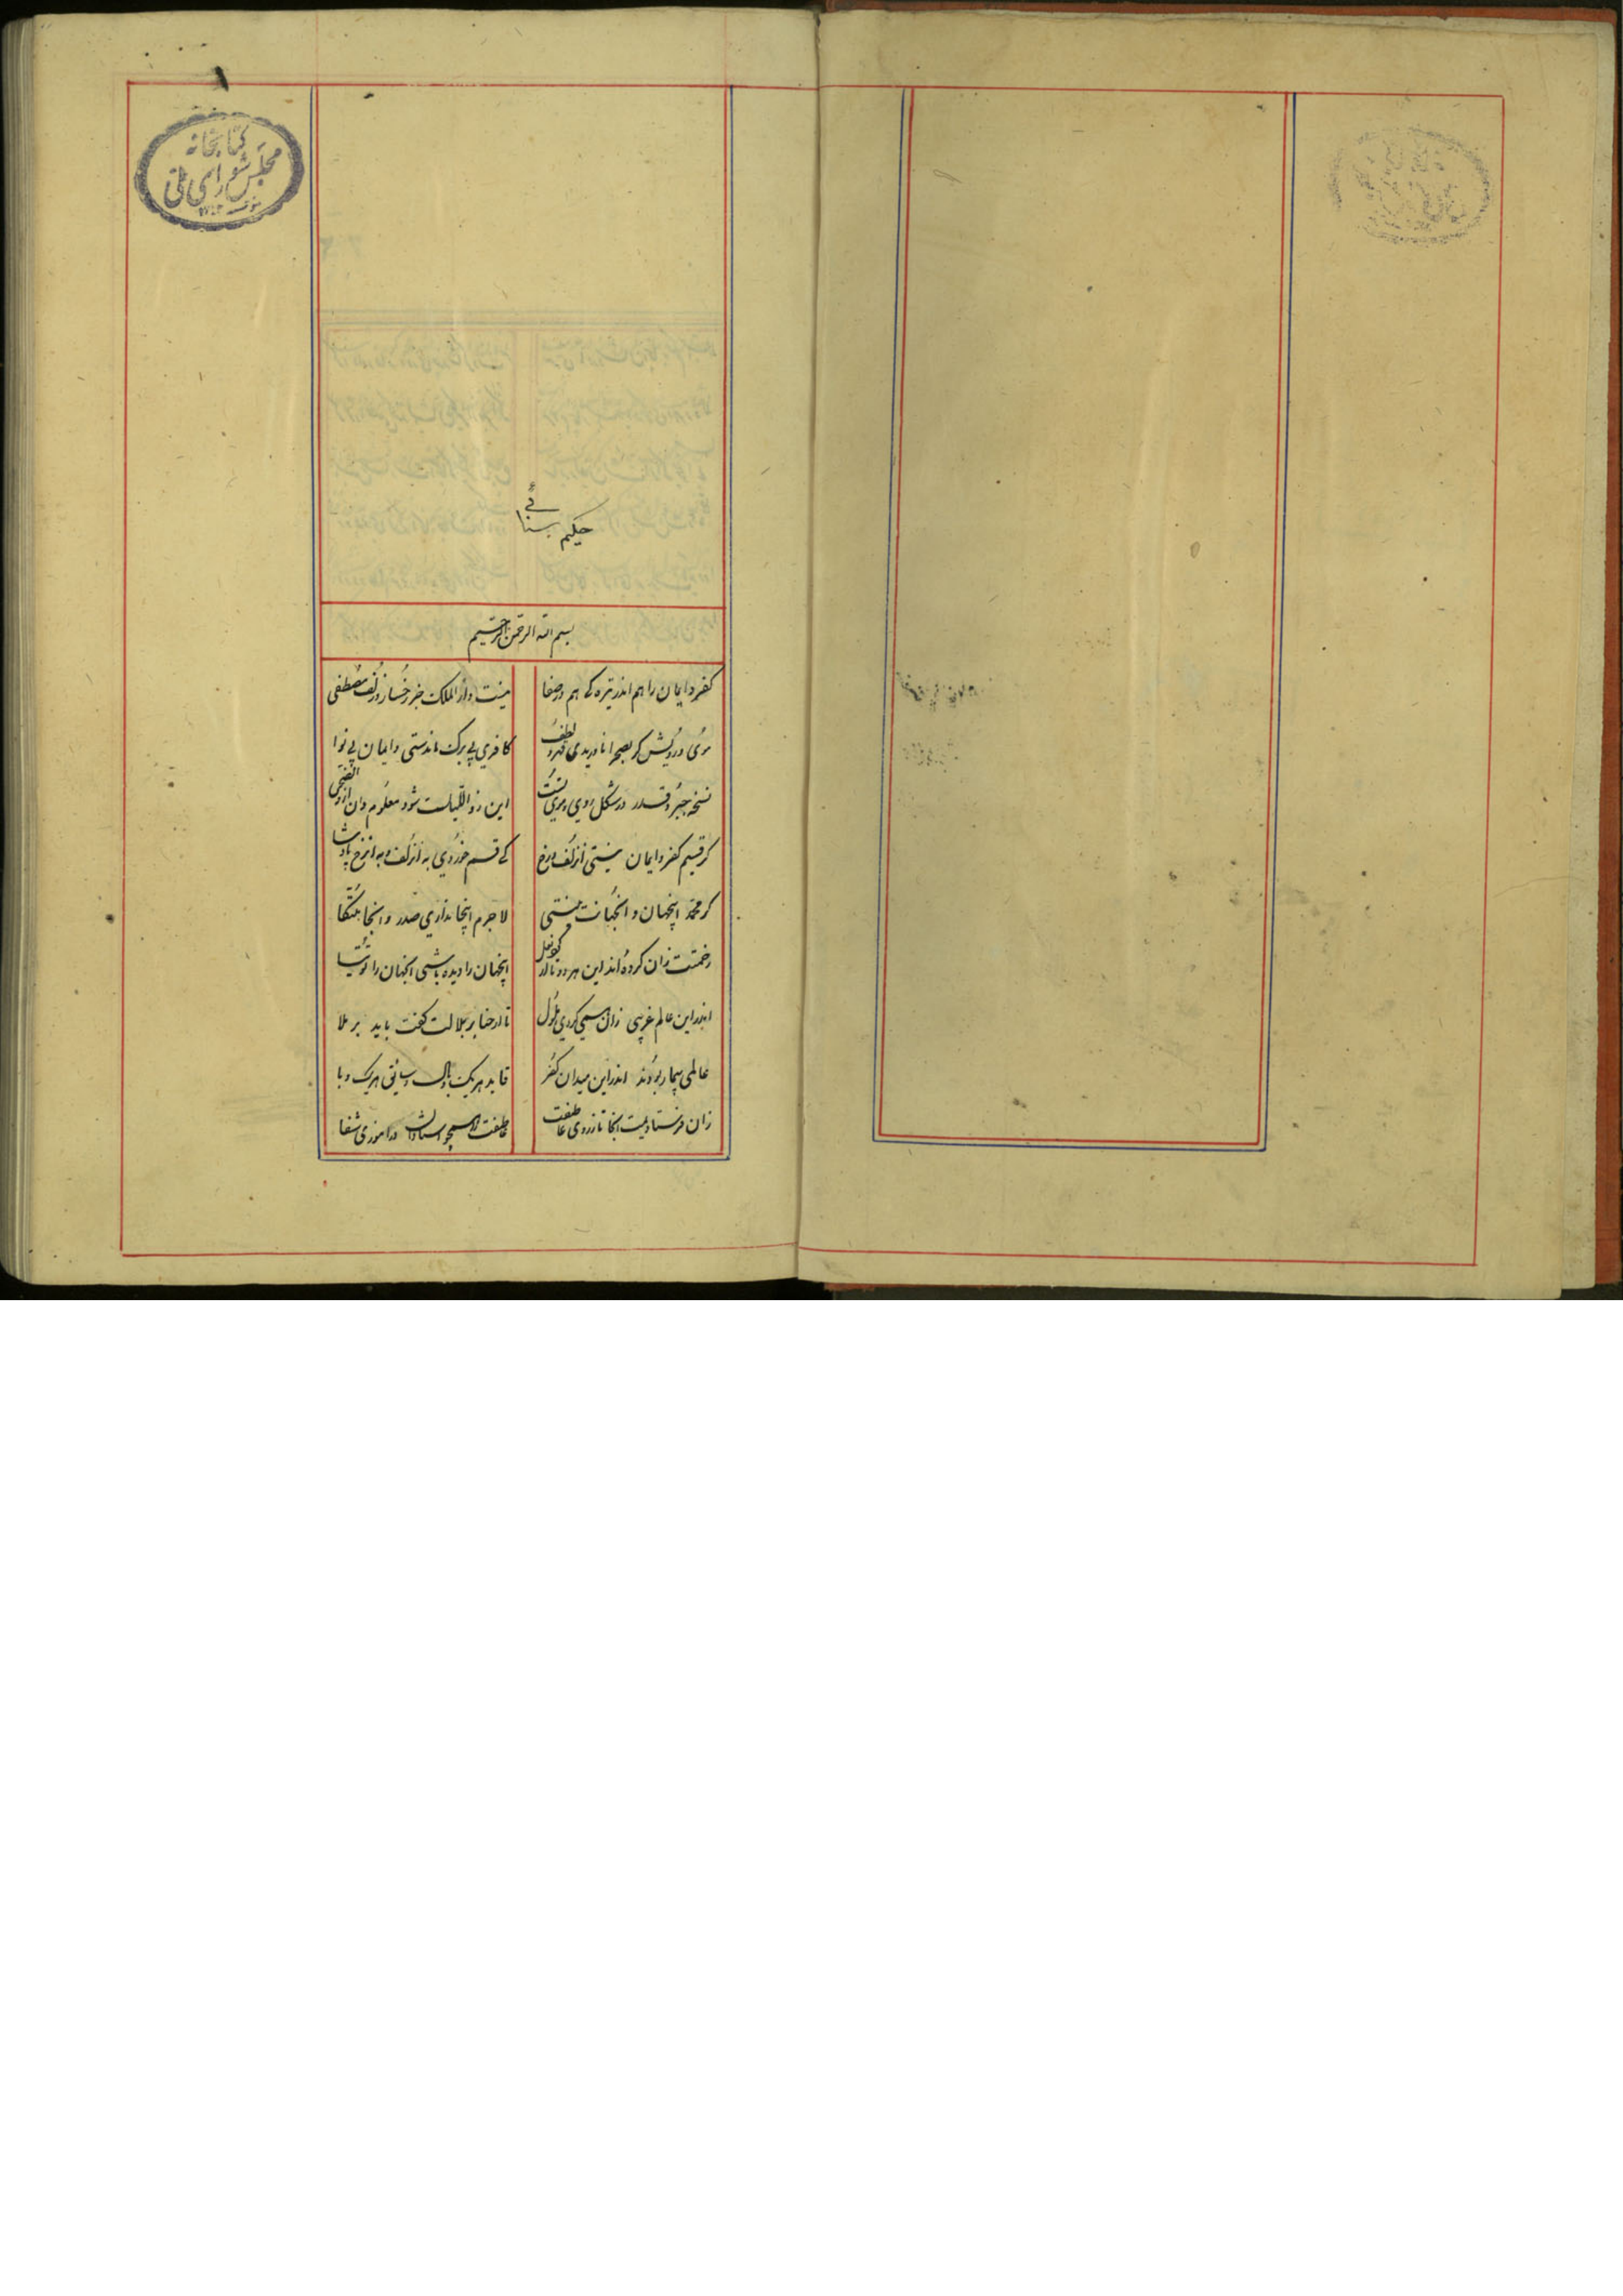 کتابخانه
مجلس شورای ملی
حکیم سنائی
بسم الله الرحمن الرحیم
کفر و ایمان را هم اندر تیرکی هم در صفا
نیست دار الملک جز رخسار و زلف مصطفی
موی و رویش کر بصحرا ناوریدی قهر و لطف
کافری بی برک ماندستی و ایمان بی نوا
نسخه جبر و قدر در شکل روی و موی تست
این ز واللیلت شود معلوم و ان از والضحی
کر قسیم کفر و ایمان نیستی از زلف و رخ
کی قسم خوردی به از زلف و به از رخ پادشا
کر محمد اینجهان و انجهانت نیستی
لاجرم اینجا نداری صدر و انجا متکا
رخمتت زان کرده اند این هر دو تا از کرد و نعل
اینجهان را دیده باشی انجهان را توتیا
اندر این عالم غریبی زان همی کردی ملول
تا ارحنا یا بلالت کفت باید بر ملا
عالمی بیمار بودند اندر این میدان کفر
قاید هر یک وبال و سایق هر یک وبا
زان فرستادیمت انجا تا ز روی عاطفت
عاطفت را همچو استادان در اموزی شفا